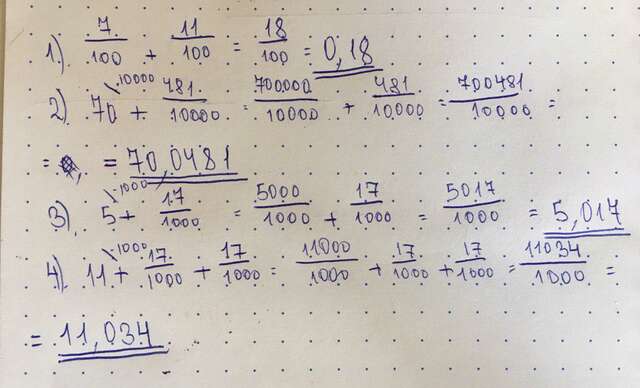 1). 7/100 + 11/100 = 18/100 = 0,18
2). 70\10000 + 481/10000 = 700000/10000 + 481/10000 = 700481/10000 =
= 70,0481
3). 5\1000 + 17/1000 = 5000/1000 + 17/1000 = 5017/1000 = 5,017
4). 11\1000 + 17/1000 + 17/1000 = 11000/1000 + 17/1000 + 17/1000 = 11034/1000 =
= 11,034